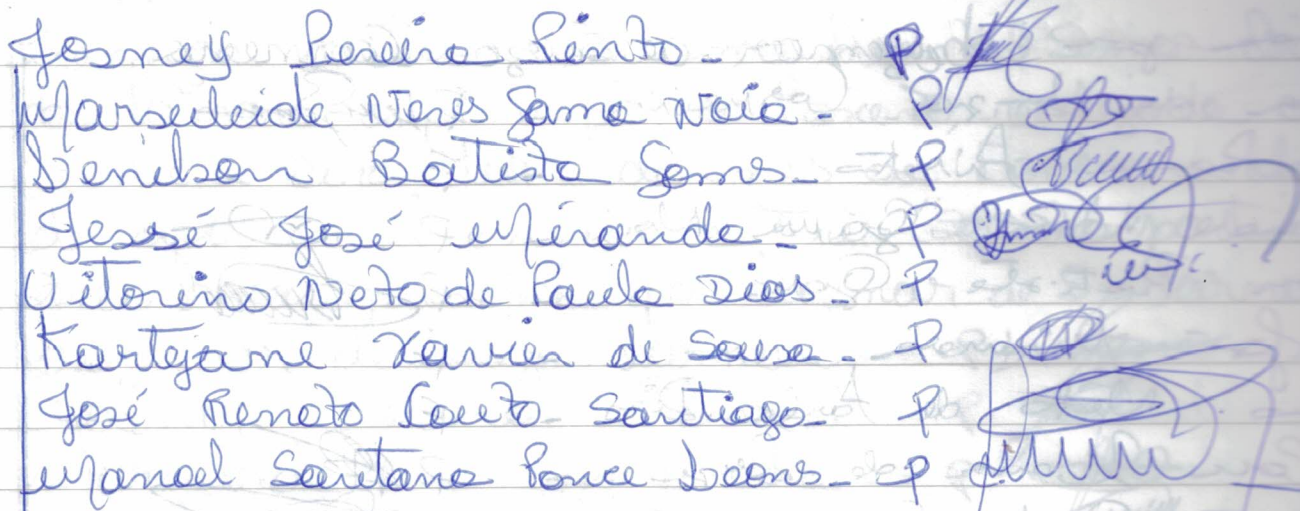 Josney Pereira Pinto - P
Marseleide Neres Gama Naia - P
Denilson Batista Gomes - P
Jessé José Miranda - P
Vitorino Neto de Paula Dias - P
Kartejane Xavier de Sousa - P
José Renato Couto Santiago - P
Manoel Santana Ponce Leons - P